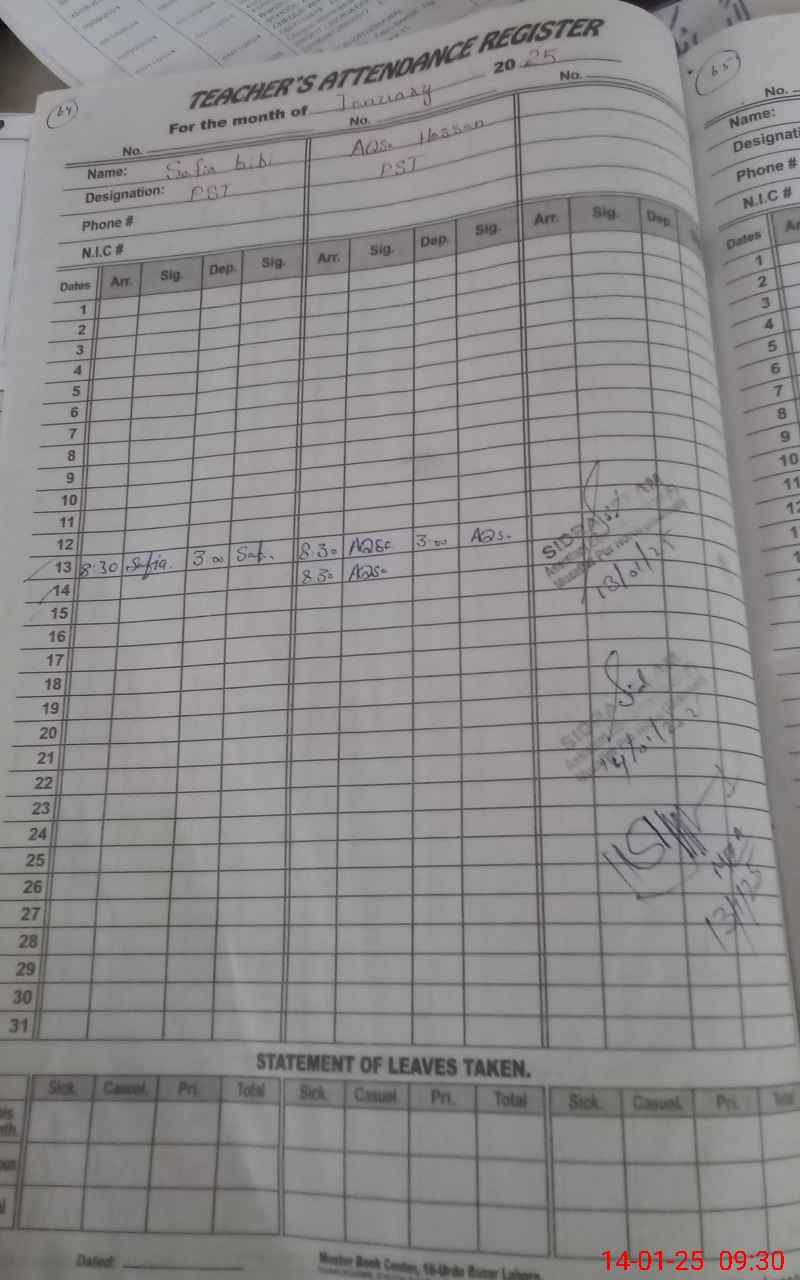 TEACHER'S ATTENDANCE REGISTER
64
For the month of January 20 25
No. No. No.
Name: Safia bibi AQSA Hassan
Designation: PST PST
Phone #
N.I.C #
Dates Arr. Sig. Dep. Sig. Arr. Sig. Dep. Sig. Arr. Sig. Dep.
1
2
3
4
5
6
7
8
9
10
11
12
13 8:30 Safia. 3:00 Saf. 8:30 AQSa 3:00 AQSa
14 8:30 AQSa
15
16
17
18
19
20
21
22
23
24
25
26
27
28
29
30
31
SIDRA
13/01/25
SIDRA
13/1/25
STATEMENT OF LEAVES TAKEN.
Sick. Casual. Pri. Total Sick. Casual. Pri. Total Sick. Casual. Pri. Total
Dated:
Master Book Center, 16-Urdu Bazar Lahore.
65
No.
Name:
Designati
Phone #
N.I.C #
Dates
1
2
3
4
5
6
7
8
9
10
11
14-01-25 09:30